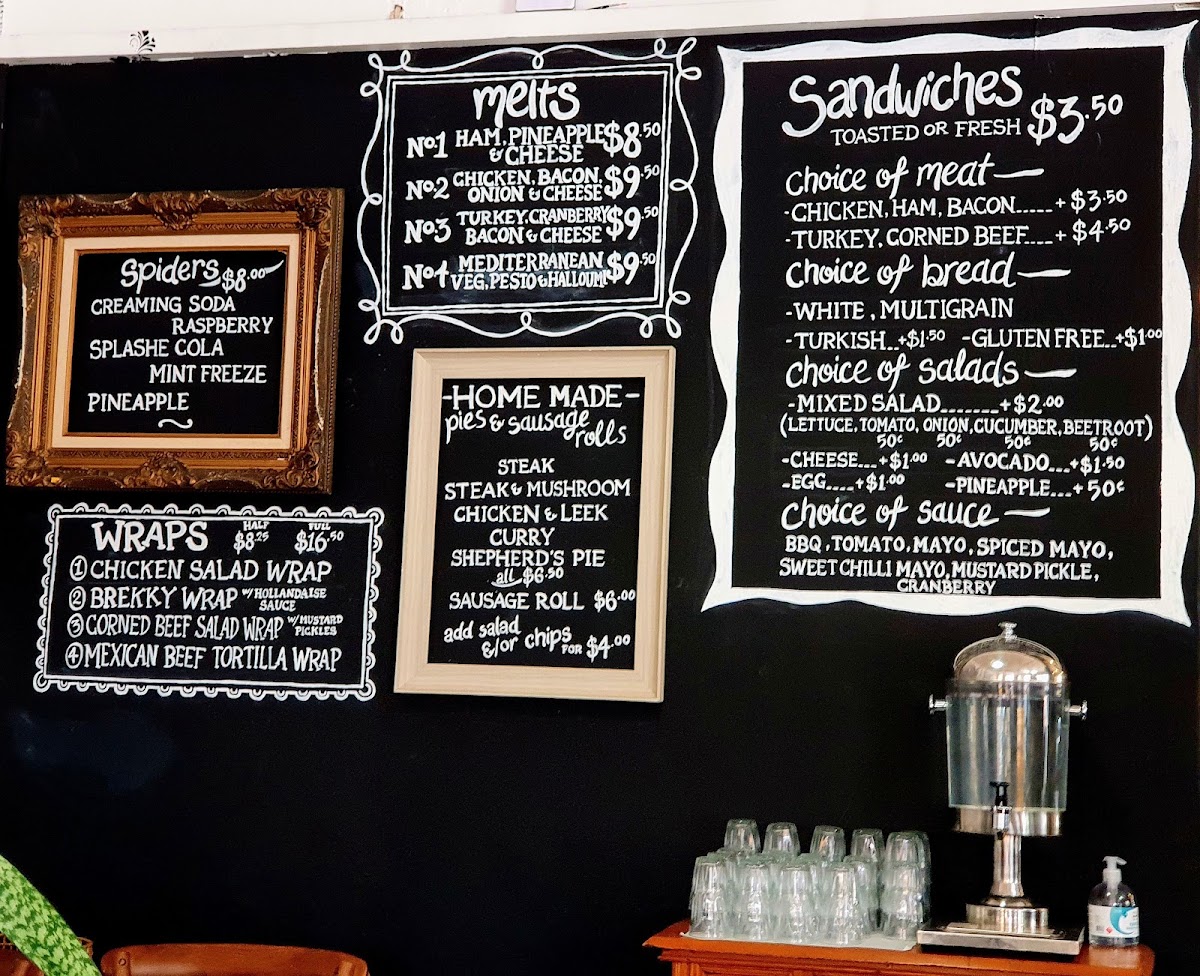 Spiders $8.00
CREAMING SODA
RASPBERRY
SPLASHE COLA
MINT FREEZE
PINEAPPLE
WRAPS HALF $8.25 FULL $16.50
① CHICKEN SALAD WRAP
② BREKKY WRAP W/HOLLANDAISE SAUCE
③ CORNED BEEF SALAD WRAP W/MUSTARD PICKLES
④ MEXICAN BEEF TORTILLA WRAP
melts
No.1 HAM, PINEAPPLE $8.50
& CHEESE
No.2 CHICKEN, BACON, $9.50
ONION & CHEESE
No.3 TURKEY, CRANBERRY $9.50
BACON & CHEESE
No4 MEDITERRANEAN $9.50
VEG, PESTO & HALLOUMI
-HOME MADE-
pies & sausage
rolls
STEAK
STEAK & MUSHROOM
CHICKEN & LEEK
CURRY
SHEPHERD'S PIE
all $6.50
SAUSAGE ROLL $6.00
add salad
&/or chips FOR $4.00
Sandwiches $3.50
TOASTED OR FRESH
choice of meat—
-CHICKEN, HAM, BACON.....+ $3.50
-TURKEY, CORNED BEEF....+ $4.50
choice of bread—
-WHITE, MULTIGRAIN
-TURKISH..+$1.50 -GLUTEN FREE..+$1.00
choice of salads—
-MIXED SALAD.......+$2.00
(LETTUCE, TOMATO, ONION, CUCUMBER, BEETROOT)
50¢ 50¢ 50¢ 50¢
-CHEESE...+$1.00 -AVOCADO...+$1.50
-EGG....+$1.00 -PINEAPPLE...+50¢
choice of sauce—
BBQ, TOMATO, MAYO, SPICED MAYO,
SWEET CHILLI MAYO, MUSTARD PICKLE,
CRANBERRY